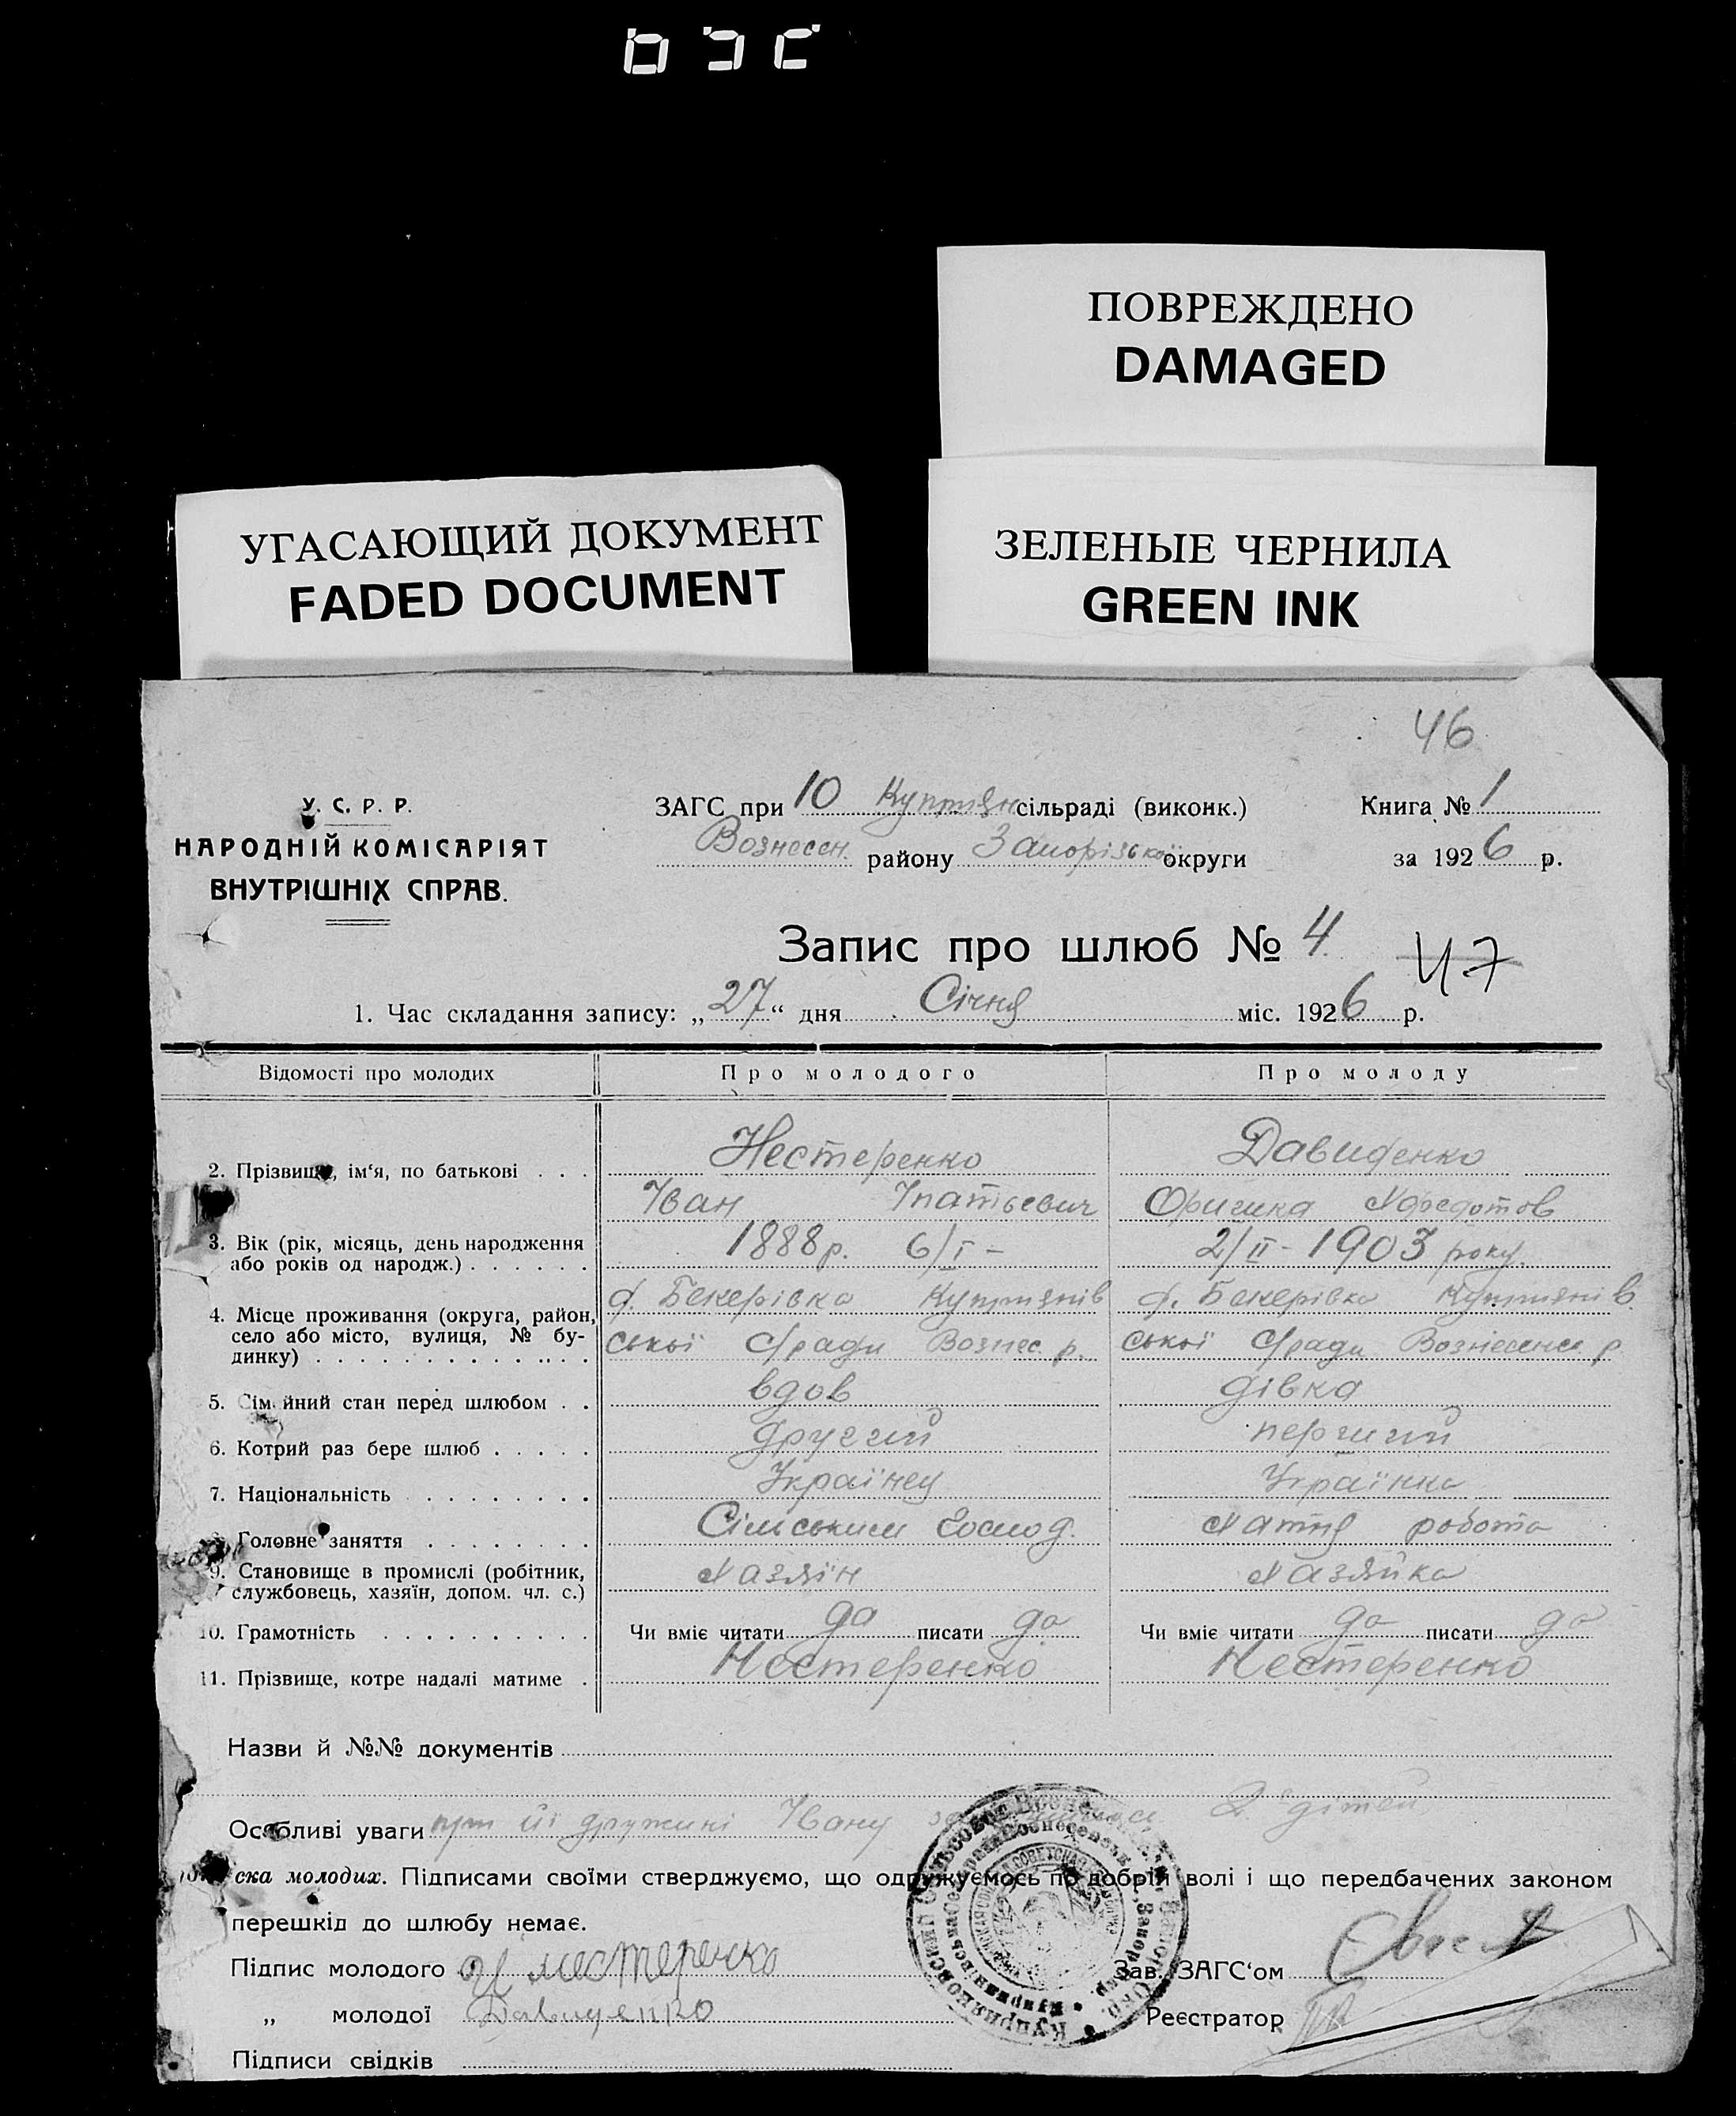 ПОВРЕЖДЕНО
DAMAGED
УГАСАЮЩИЙ ДОКУМЕНТ
FADED DOCUMENT
ЗЕЛЕНЫЕ ЧЕРНИЛА
GREEN INK
46
У. С. Р. Р.
НАРОДНІЙ КОМІСАРІЯТ
ВНУТРІШНІХ СПРАВ.
ЗАГС при 10 Купріян сільраді (виконк.)
Вознесен. району Запорізької округи
Книга № 1
за 1926 р.
Запис про шлюб № 4
47
1. Час складання запису: „27“ дня Січня міс. 1926 р.
Відомості про молодих Про молодого Про молоду
2. Прізвище, ім‘я, по батькові . . . Нестеренко Давиденко
Іван Ігнатьевич
3. Вік (рік, місяць, день народження або років од народж.) . . . . . . 1888 р. 6/I – 2/II – 1903 року.
4. Місце проживання (округа, район, село або місто, вулиця, № будинку) . . . Бекерівка Купріянів Бекерівка Купріянів
ської С/ради Вознес. р. ської С/ради р.
5. Сімейний стан перед шлюбом . . вдов дівка
6. Котрий раз бере шлюб . . . . . другий перший
7. Національність . . . . . . . . Українец Українка
8. Головне заняття . . . . . . . . Сільським господ. Хатня робота
9. Становище в промислі (робітник, службовець, хазяїн, допом. чл. с.) Хазяїн Хазяйка
10. Грамотність . . . . . . . . . . Чи вміє читати да писати да Чи вміє читати да писати да
11. Прізвище, котре надалі матиме . Нестеренко Нестеренко
Назви й №№ документів
Особливі уваги дружині Івану 2 дітей
ска молодих. Підписами своїми стверджуємо, що одружуємось по добрій волі і що передбачених законом
перешкід до шлюбу немає.
Підпис молодого Нестеренко Зав. ЗАГС‘ом
„ молодої Давиденко Реєстратор
Підписи свідків